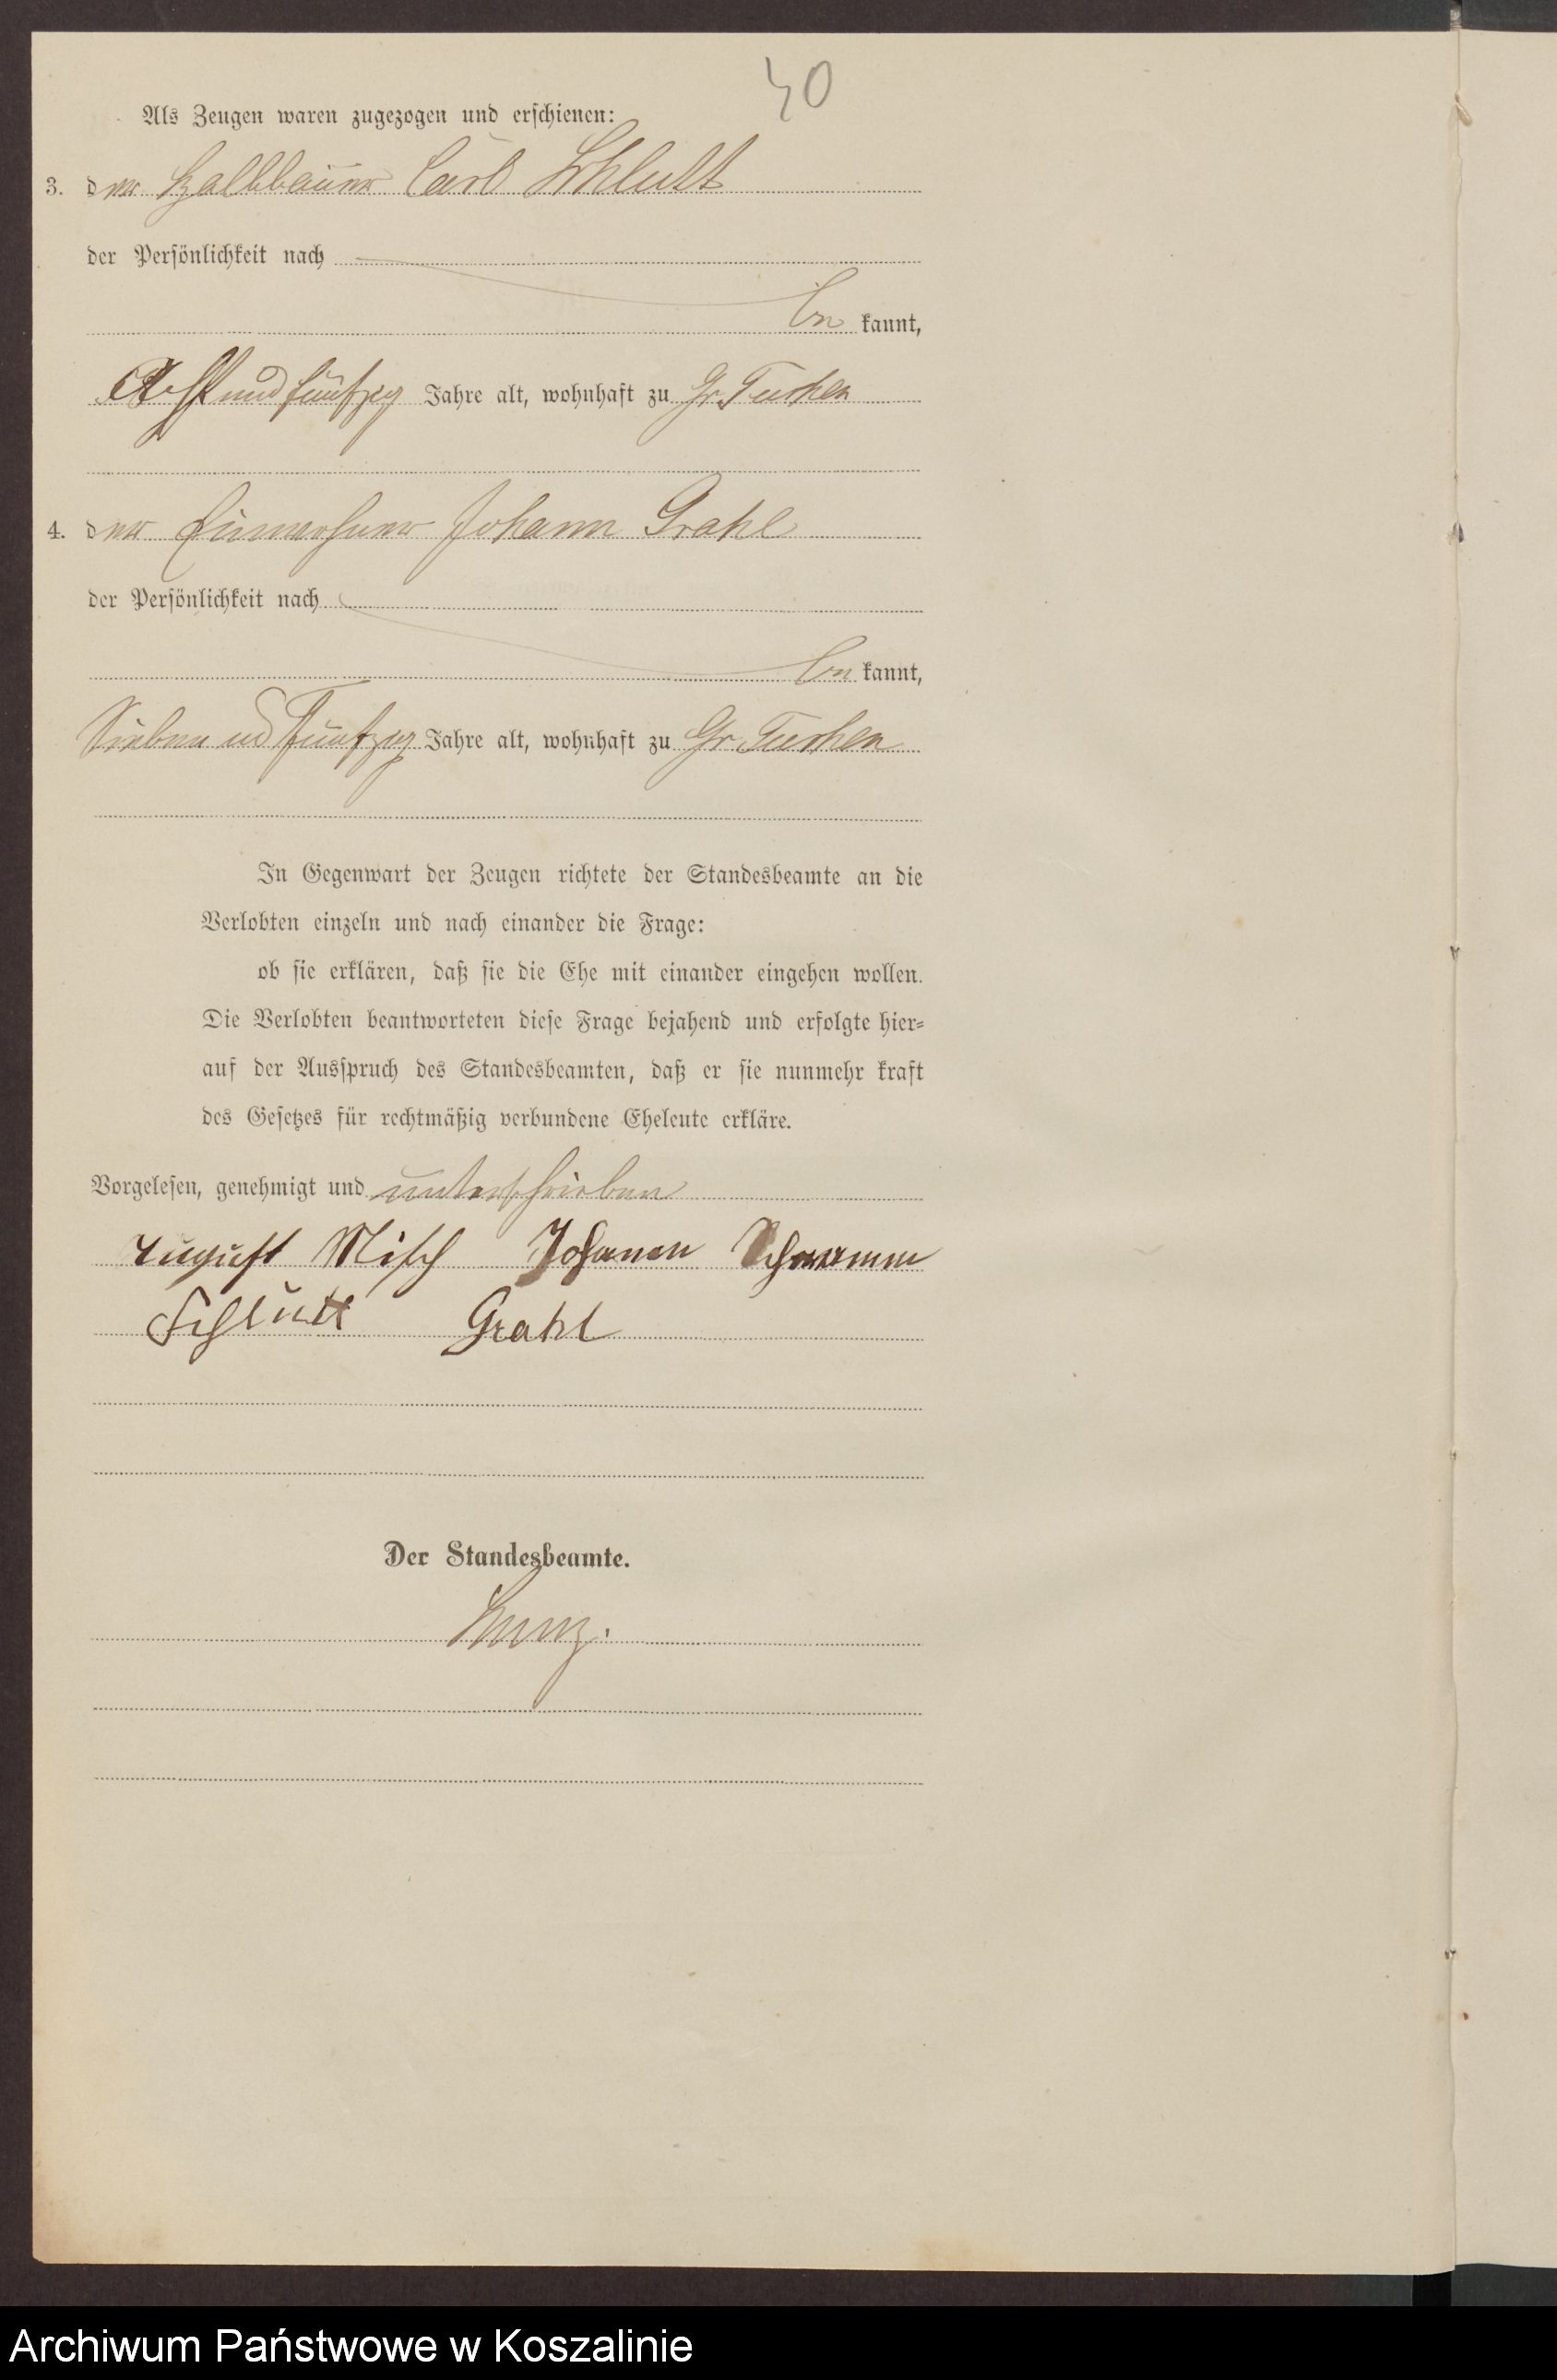 40
Als Zeugen waren zugezogen und erschienen:
3. der Halbbauer Carl Schlutt
der Persönlichkeit nach
be kannt,
Acht und fünfzig Jahre alt, wohnhaft zu Gr. Tuchen
4. der Johann Grahl
der Persönlichkeit nach
be kannt,
Sieben und fünfzig Jahre alt, wohnhaft zu Gr. Tuchen
In Gegenwart der Zeugen richtete der Standesbeamte an die
Verlobten einzeln und nach einander die Frage:
ob sie erklären, daß sie die Ehe mit einander eingehen wollen.
Die Verlobten beantworteten diese Frage bejahend und erfolgte hier=
auf der Ausspruch des Standesbeamten, daß er sie nunmehr kraft
des Gesetzes für rechtmäßig verbundene Eheleute erkläre.
Vorgelesen, genehmigt und unterschrieben
August Misch Johann Schramm
Schlutt Grahl
Der Standesbeamte.
Archiwum Państwowe w Koszalinie